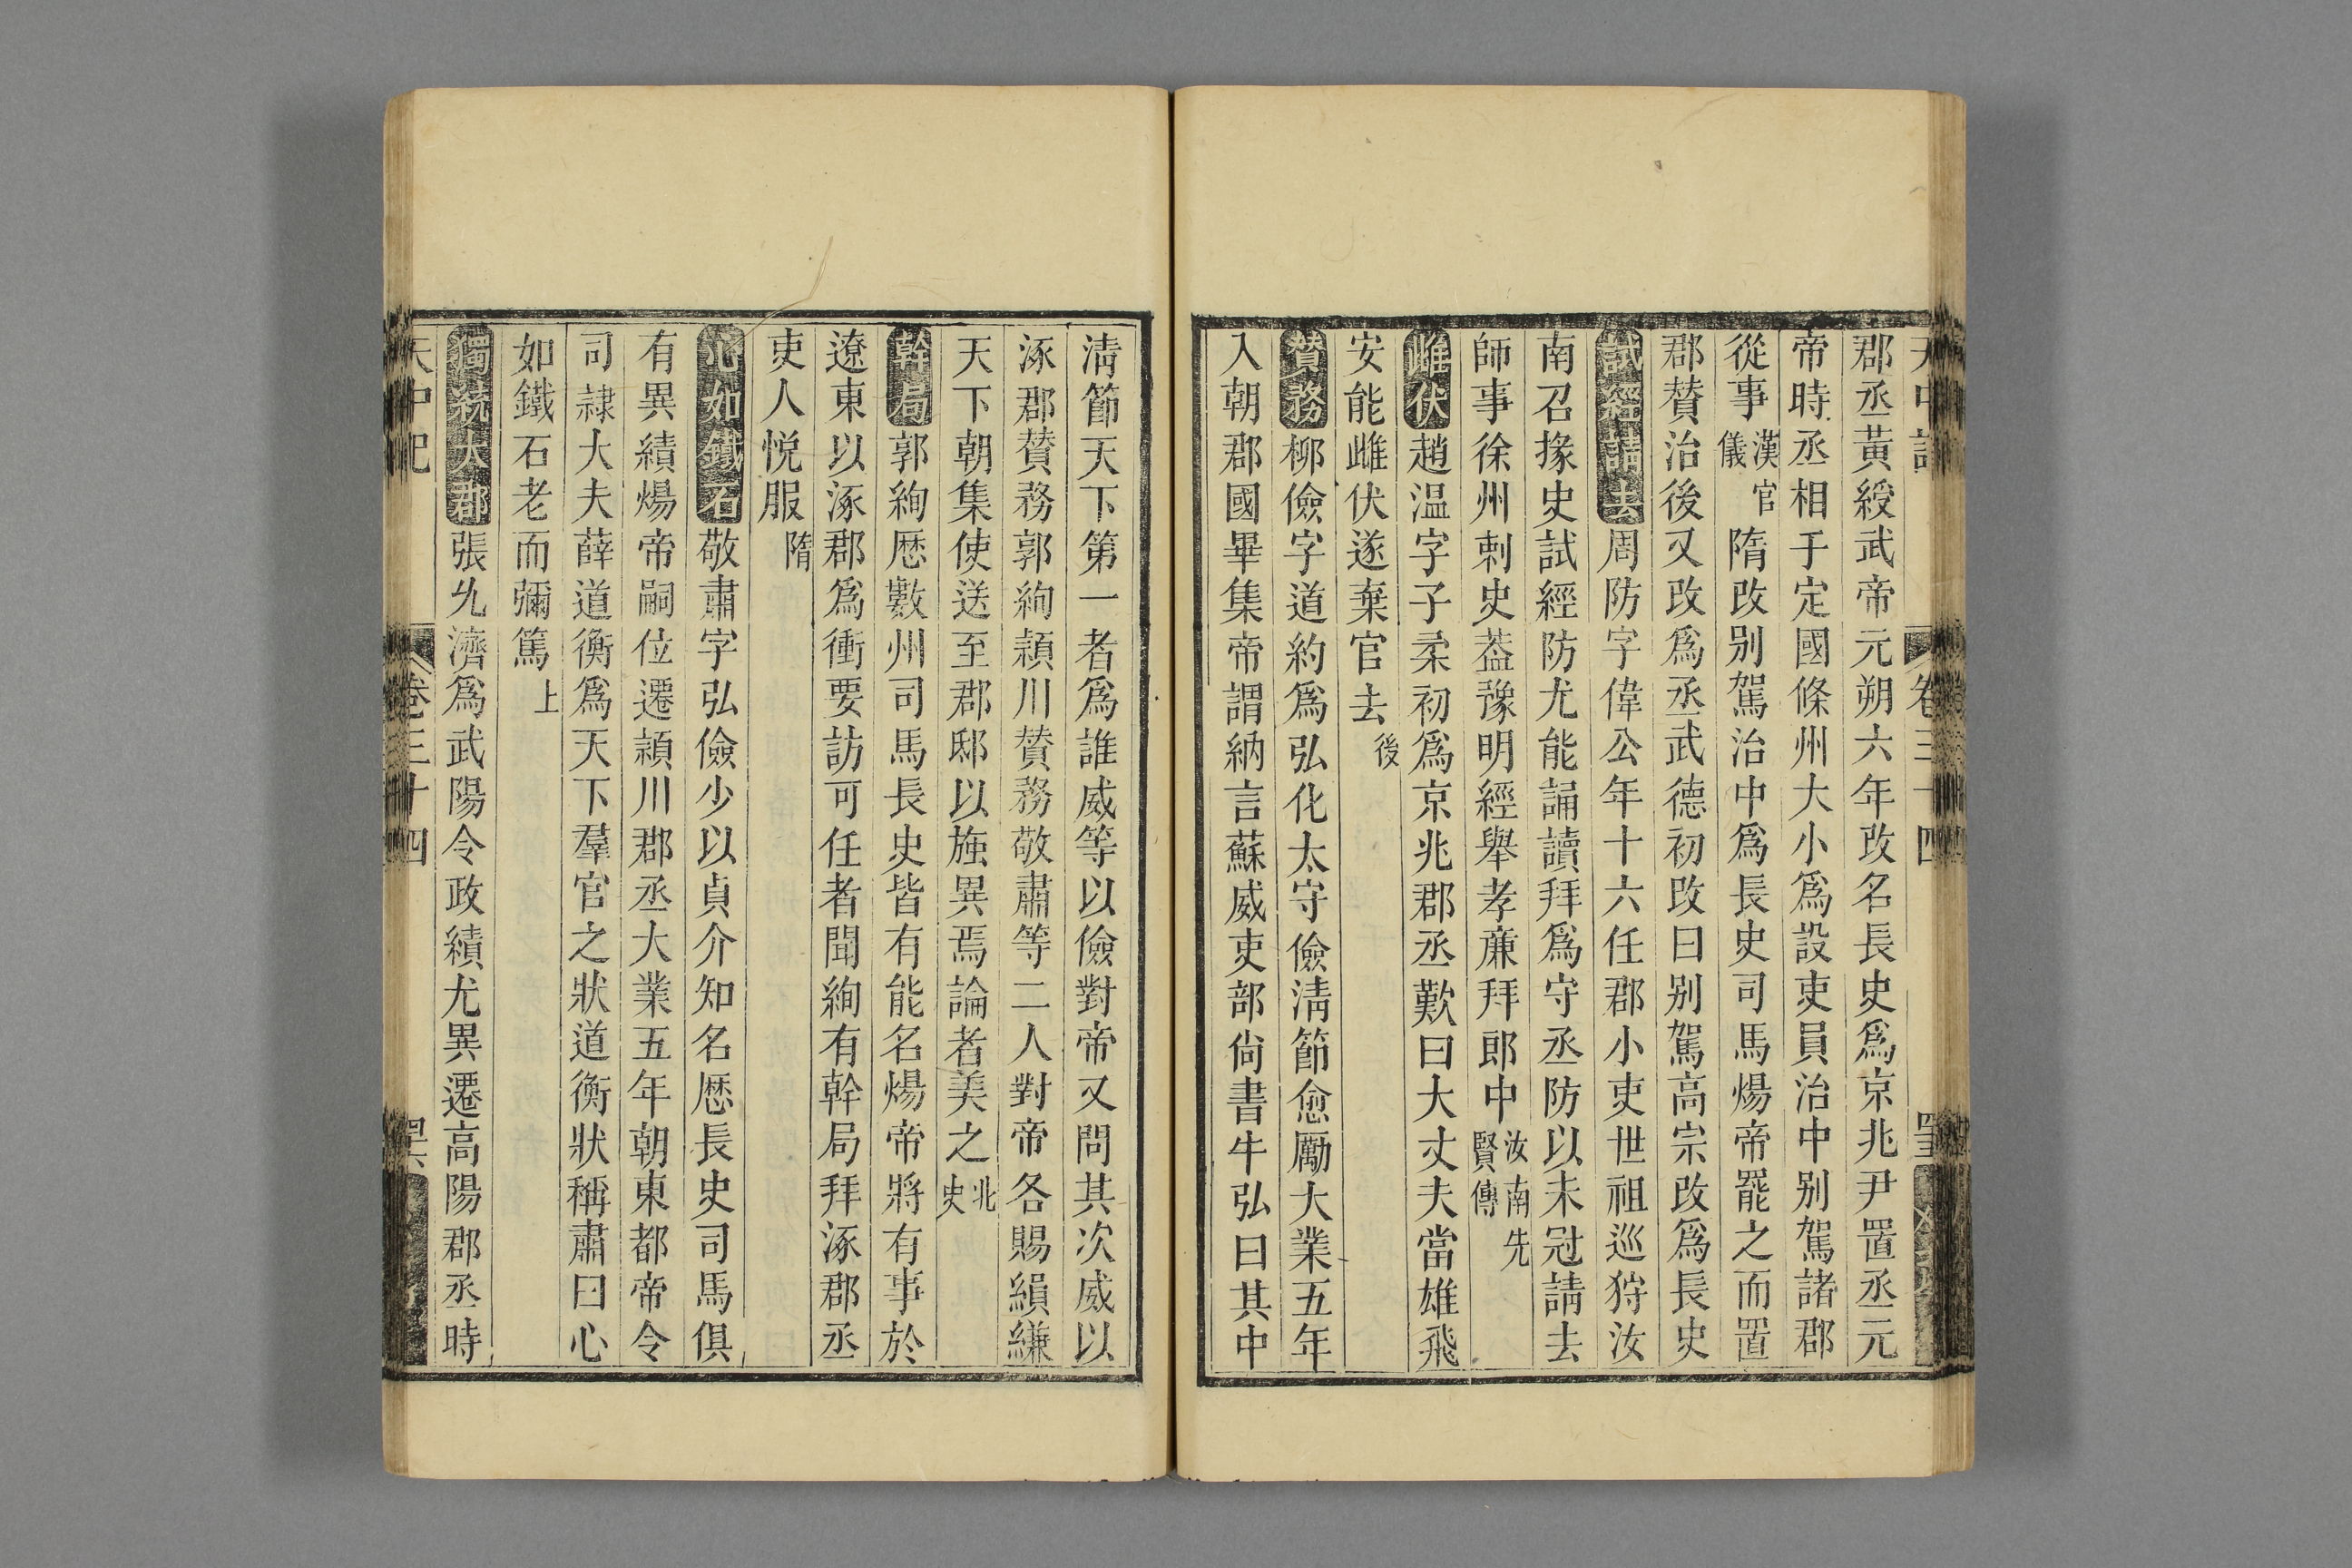 天中記 卷三十四
郡丞黃綬武帝元朔六年改名長史爲京兆尹置丞元
帝時丞相于定國條州大小爲設吏員治中別駕諸郡
從事漢官儀 隋改別駕治中爲長史司馬煬帝罷之而置
郡賛治後又改爲丞武德初改曰別駕高宗改爲長史
試經請去周防字偉公年十六任郡小吏世祖巡狩汝
南召掾史試經防尤能誦讀拜爲守丞防以未冠請去
師事徐州刺史葢豫明經舉孝亷拜郎中汝南先賢傳
雌伏趙温字子柔初爲京兆郡丞歎曰大丈夫當雄飛
安能雌伏遂棄官去後
賛務柳儉字道約爲弘化太守儉淸節愈厲大業五年
入朝郡國畢集帝謂納言蘇威吏部尙書牛弘曰其中
淸節天下第一者爲誰威等以儉對帝又問其次威以
涿郡賛務郭絢頴川賛務敬肅等二人對帝各賜絹縑
天下朝集使送至郡邸以旌異焉論者美之北史
幹局郭絢厯數州司馬長史皆有能名煬帝將有事於
遼東以涿郡爲衝要訪可任者聞絢有幹局拜涿郡丞
吏人悅服隋
心如鐵石敬肅字弘儉少以貞介知名厯長史司馬俱
有異績煬帝嗣位遷頴川郡丞大業五年朝東都帝令
司隷大夫薛道衡爲天下羣官之狀道衡狀稱肅曰心
如鐵石老而彌篤上
獨統大郡張允濟爲武陽令政績尤異遷高陽郡丞時
天中記 卷三十四